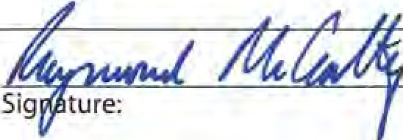 Raymond McCarthy
Signature: